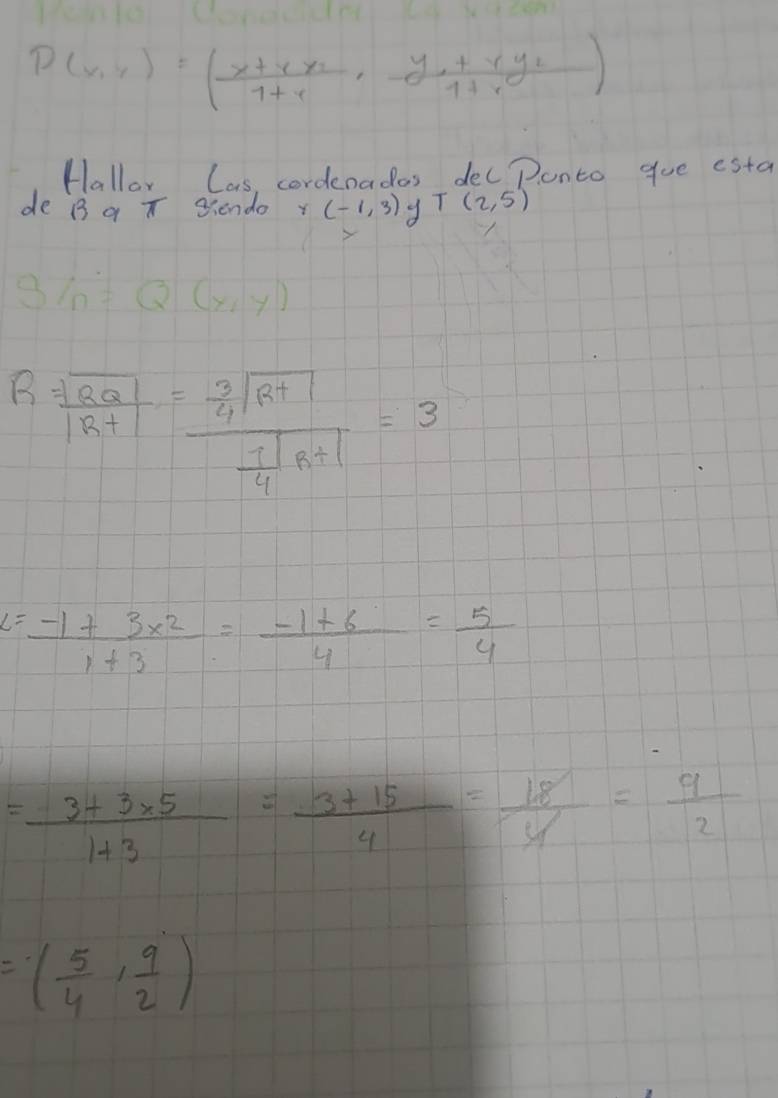 Punto Conocida La razon
P(x,y) = (x+rx₂/1+r, y₁+ry₂/1+r)
Hallar Las cordenadas del Punto que esta
de B a T siendo r (-1,3) y T (2,5)
S/n = Q (x,y)
R = |RQ|/|Rt| = 3/4|Rt|/1/4|Rt| = 3
= -1 + 3x2/1+3 = -1+6/4 = 5/4
= 3+3x5/1+3 = 3+15/4 = 18/4 = 9/2
= (5/4, 9/2)